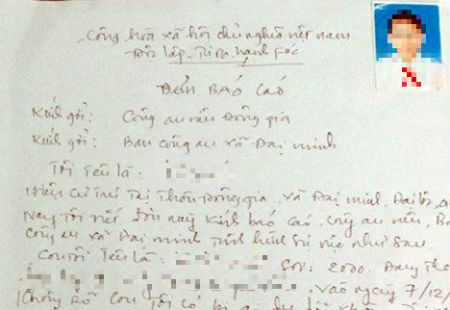 Cộng hòa xã hội chủ nghĩa việt nam
Độc lập - Tự do hạnh fúc
ĐƠN BÁO CÁO
Kính gởi: Công an Đông gia
Kính gởi: Ban công an xã Đại minh
Tôi tên là:
Hiện cư trú Tại Thôn Đông gia, xã Đại minh, Đại lộ,
Nay Tôi viết đơn này Kính báo cáo, Công an
Công an xã Đại minh Tình hình sự việc như sau.
Con Tôi Tên là: SN: 2000. Đang
Vào ngày 7/12/
Không rõ Con Tôi có bị